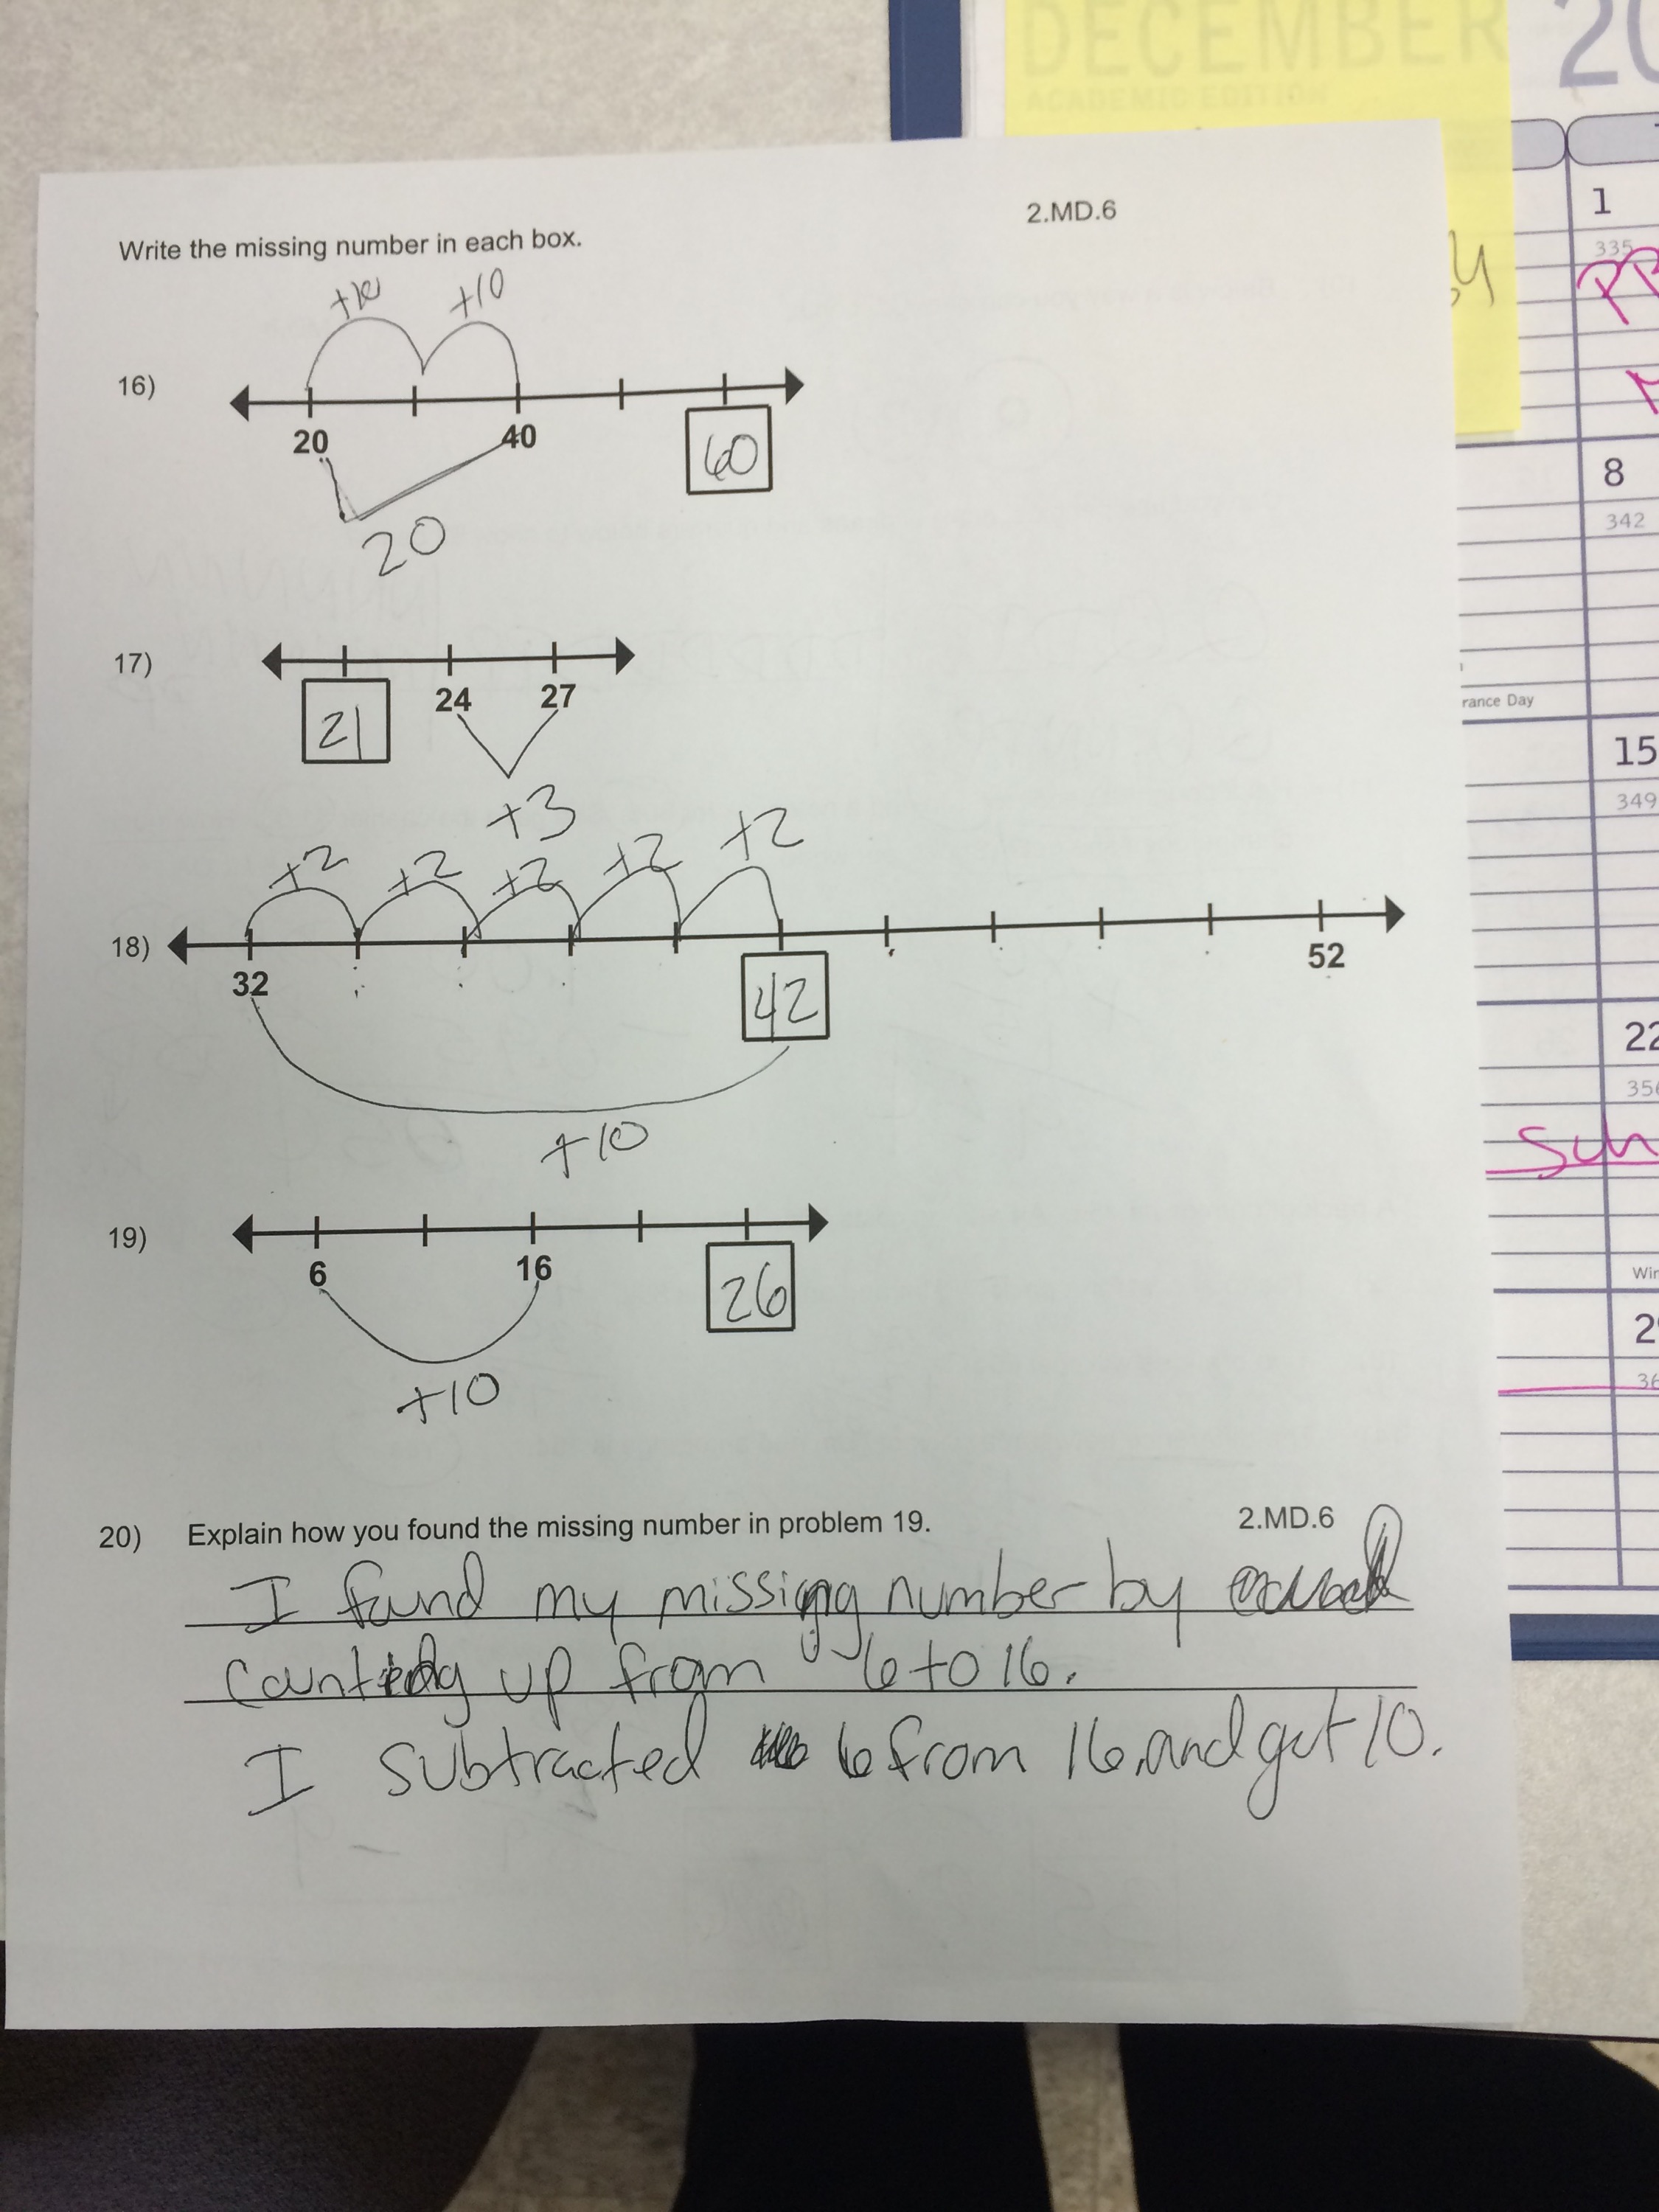 DECEMBER
ACADEMIC EDITION
20
2.MD.6
Write the missing number in each box.
+10 +10
16)
20 40 60
20
17)
21 24 27
+3
+2 +2 +2 +2 +2
18)
32 42 52
+10
19)
6 16 26
+10
20) Explain how you found the missing number in problem 19. 2.MD.6
I found my missing number by
counting up from 6 to 16.
I subtracted 6 from 16 and get 10.
1
335
8
342
rance Day
15
349
22
356
Sch
Win
29
36